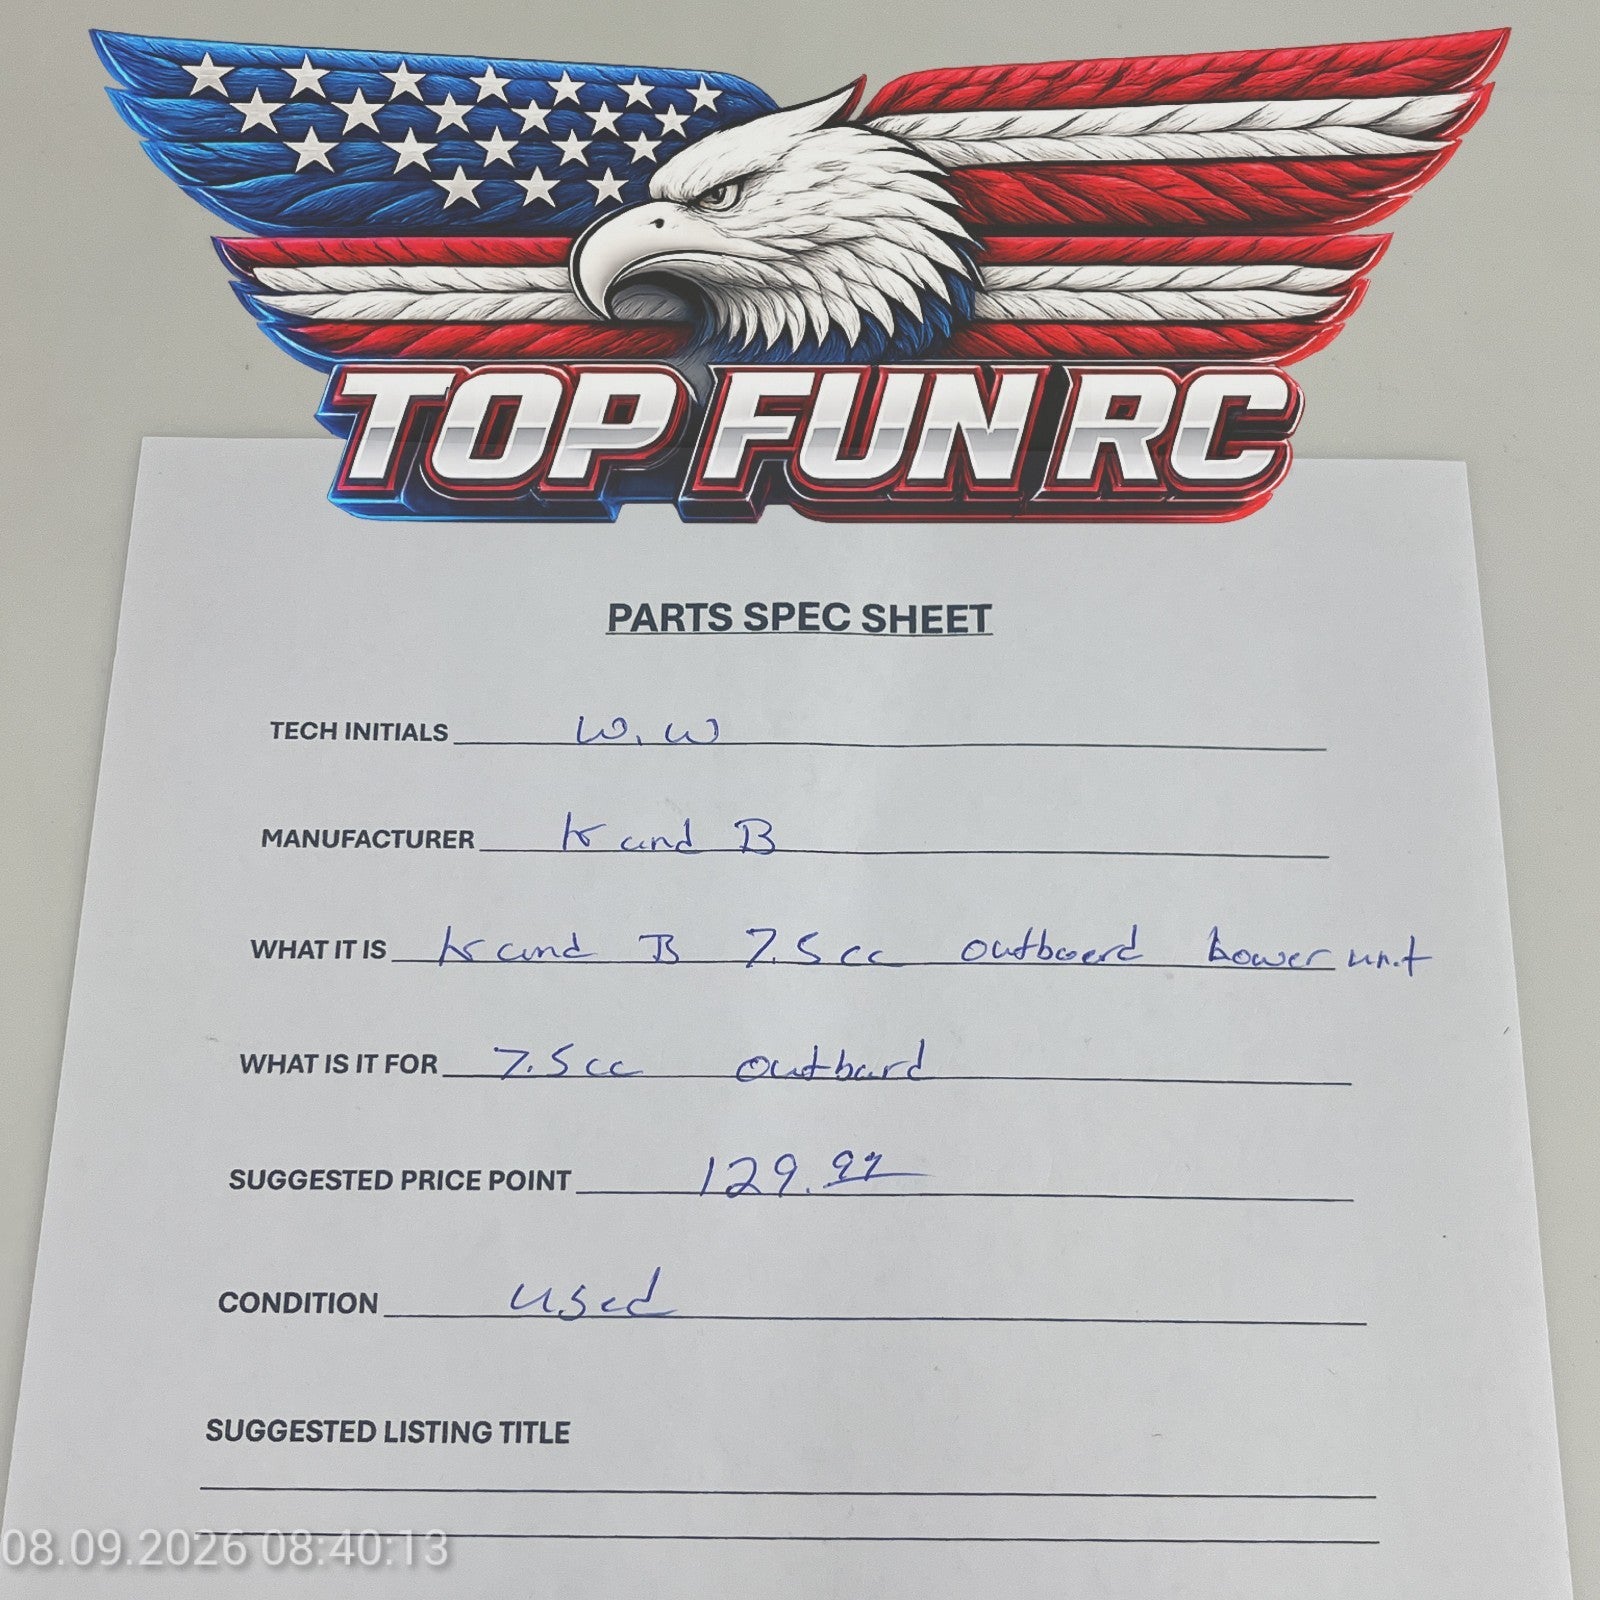 TOP FUN RC
PARTS SPEC SHEET
TECH INITIALS W. W
MANUFACTURER K and B
WHAT IT IS K and B 7.5cc outboard lower unit
WHAT IS IT FOR 7.5cc outbard
SUGGESTED PRICE POINT 129.99
CONDITION used
SUGGESTED LISTING TITLE
08.09.2026 08:40:13